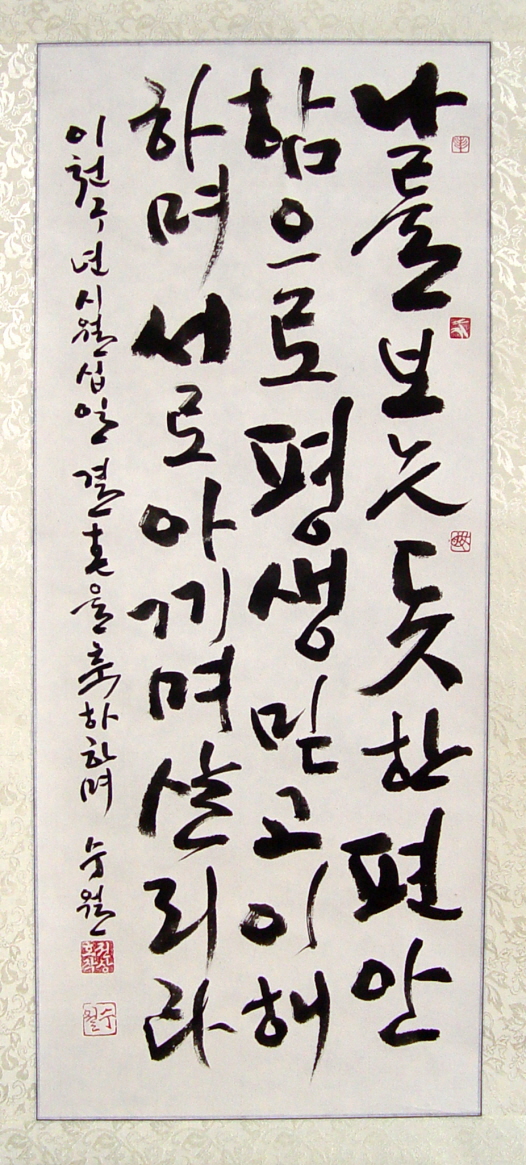 나를보는듯한편안
함으로평생믿고이해
하며서로아끼며살리라
이천구년시월십일 결혼을축하하며 수월
수월